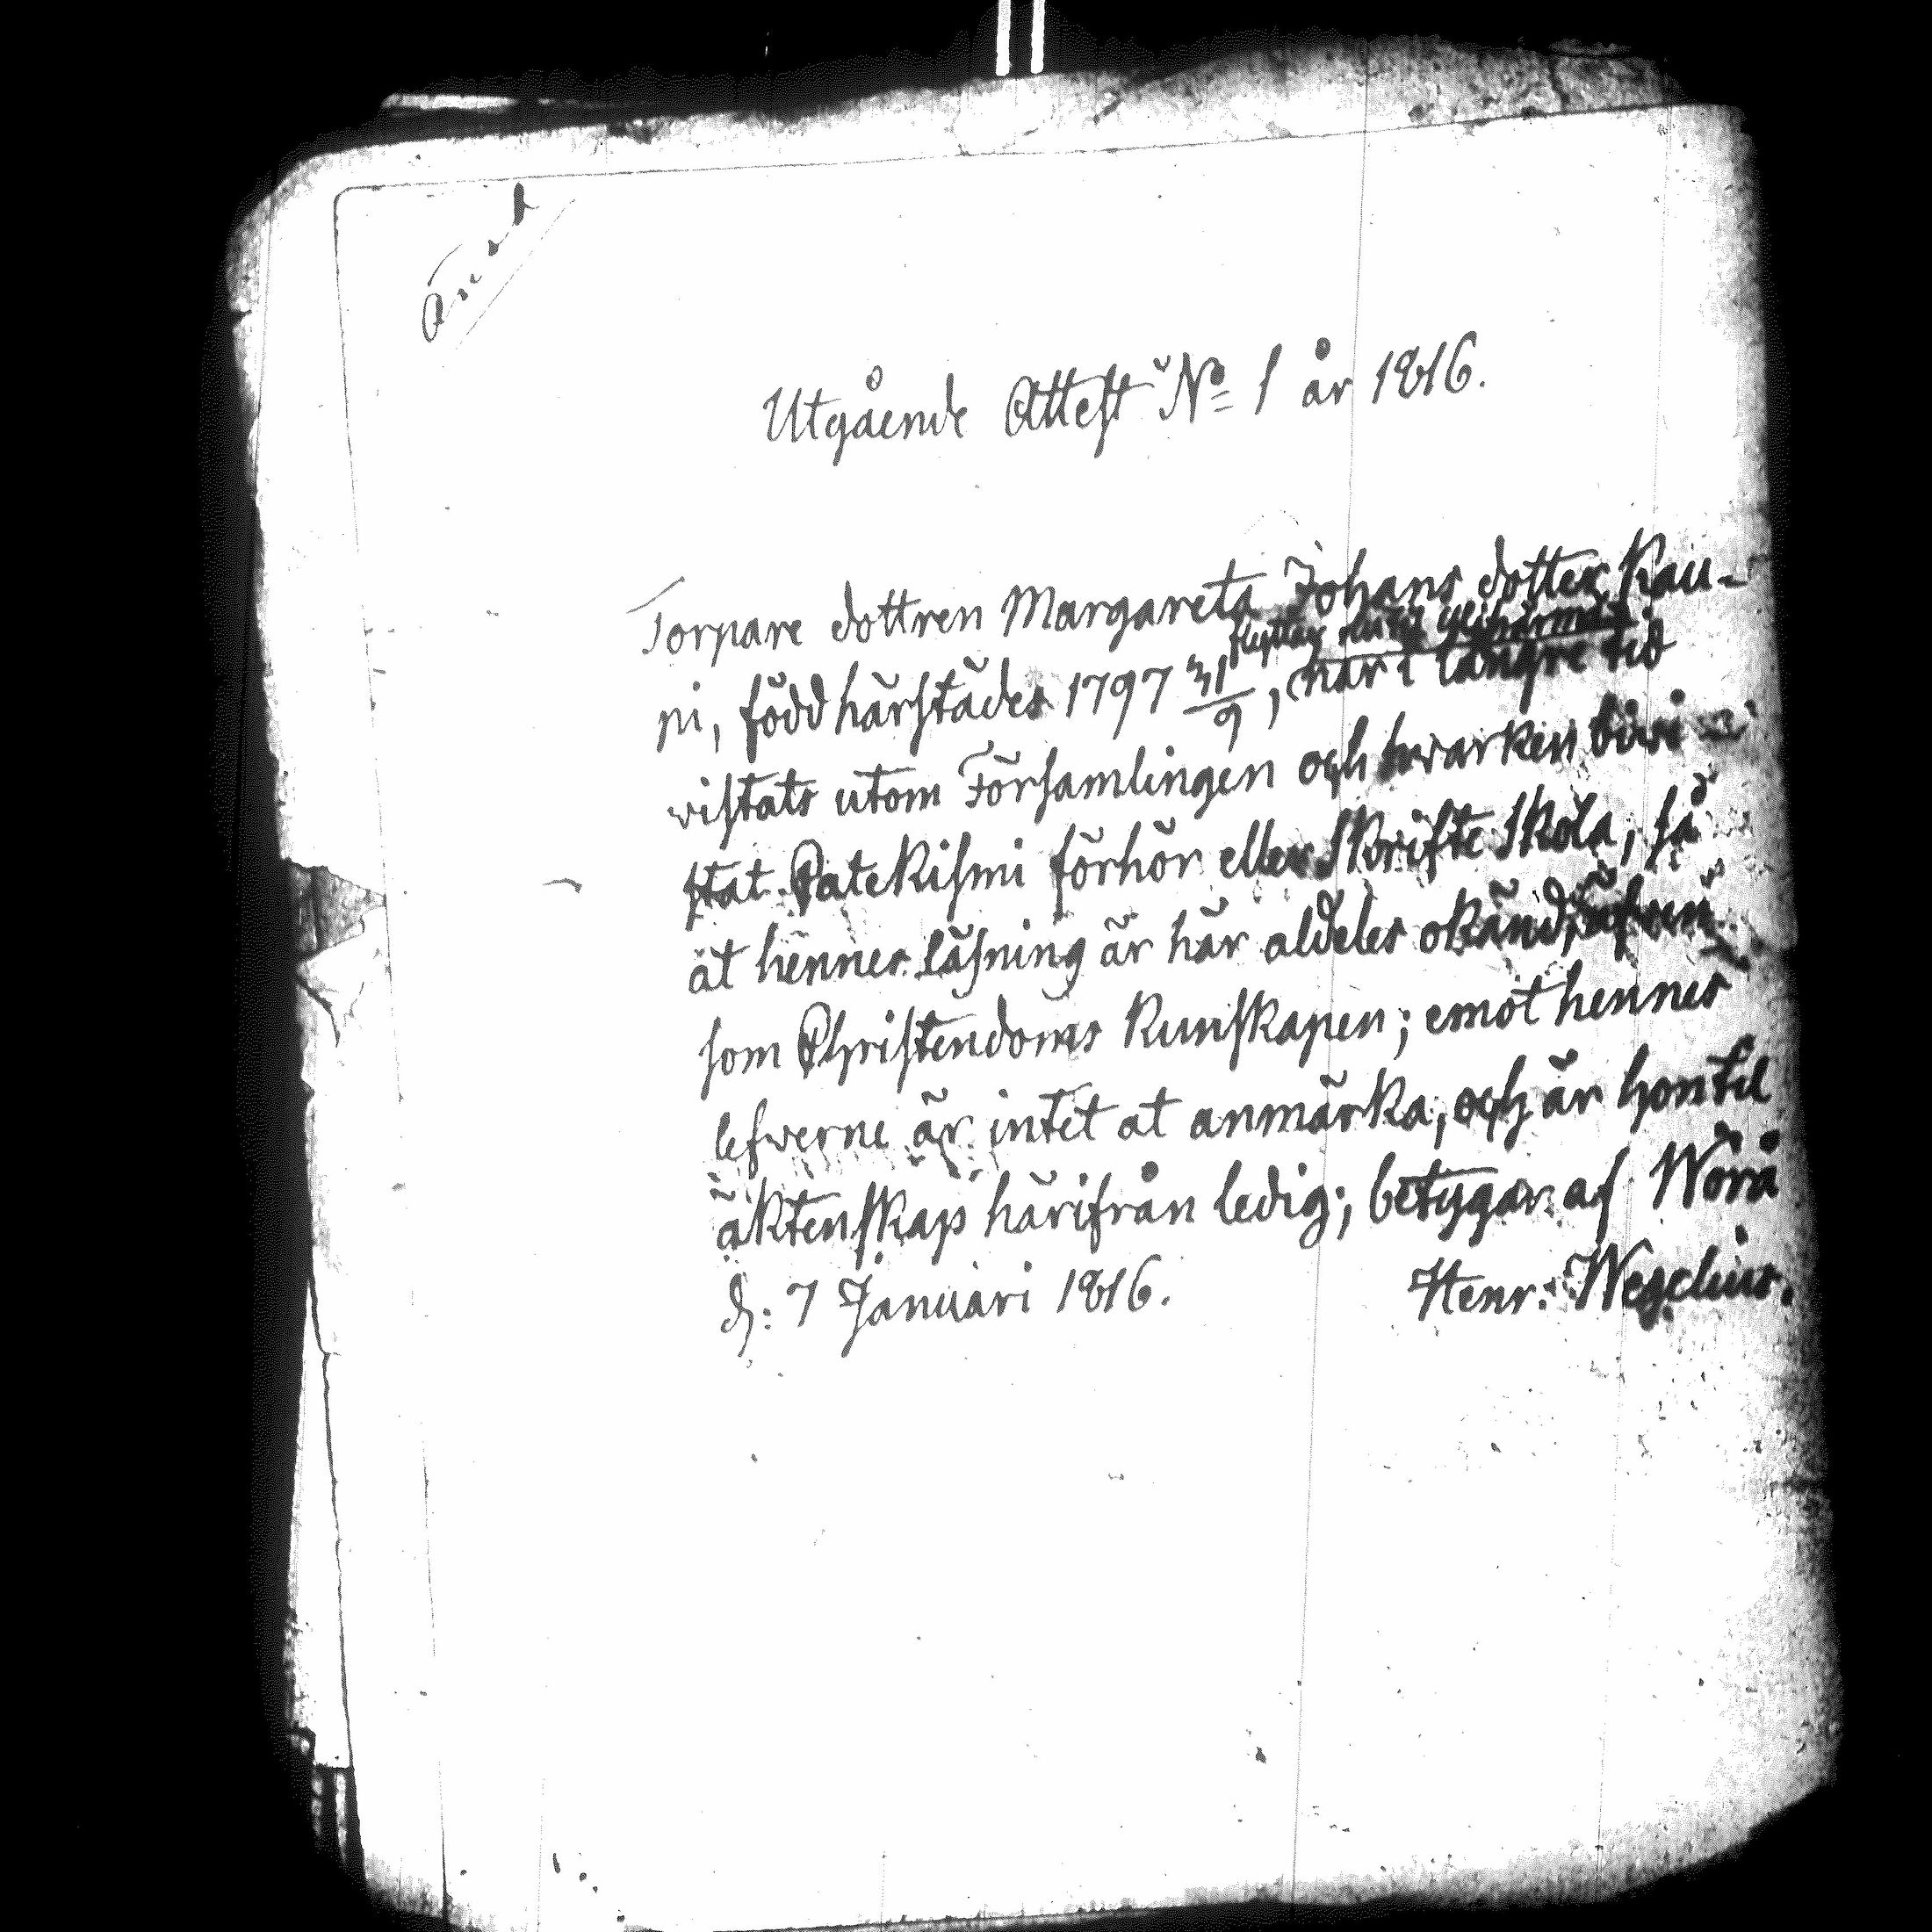 Utgående Attest No 1 år 1816.
Torpare dottren Margareta Johans dotter Kau-
flyttar
pi, född härstädes 1797 31/9, har i längre tid
vistats utom Församlingen och hvarken bivi-
stat Catekismi förhör eller Skrifte Skola, så
at hennes läsning är här aldeles okänd, äfven
som Christendoms kunskapen; emot hennes
lefverne är intet at anmärka, och är hon til
äktenskap härifrån ledig; betygar af Wörå
d: 7 Januari 1816. Henr: Wegelius.